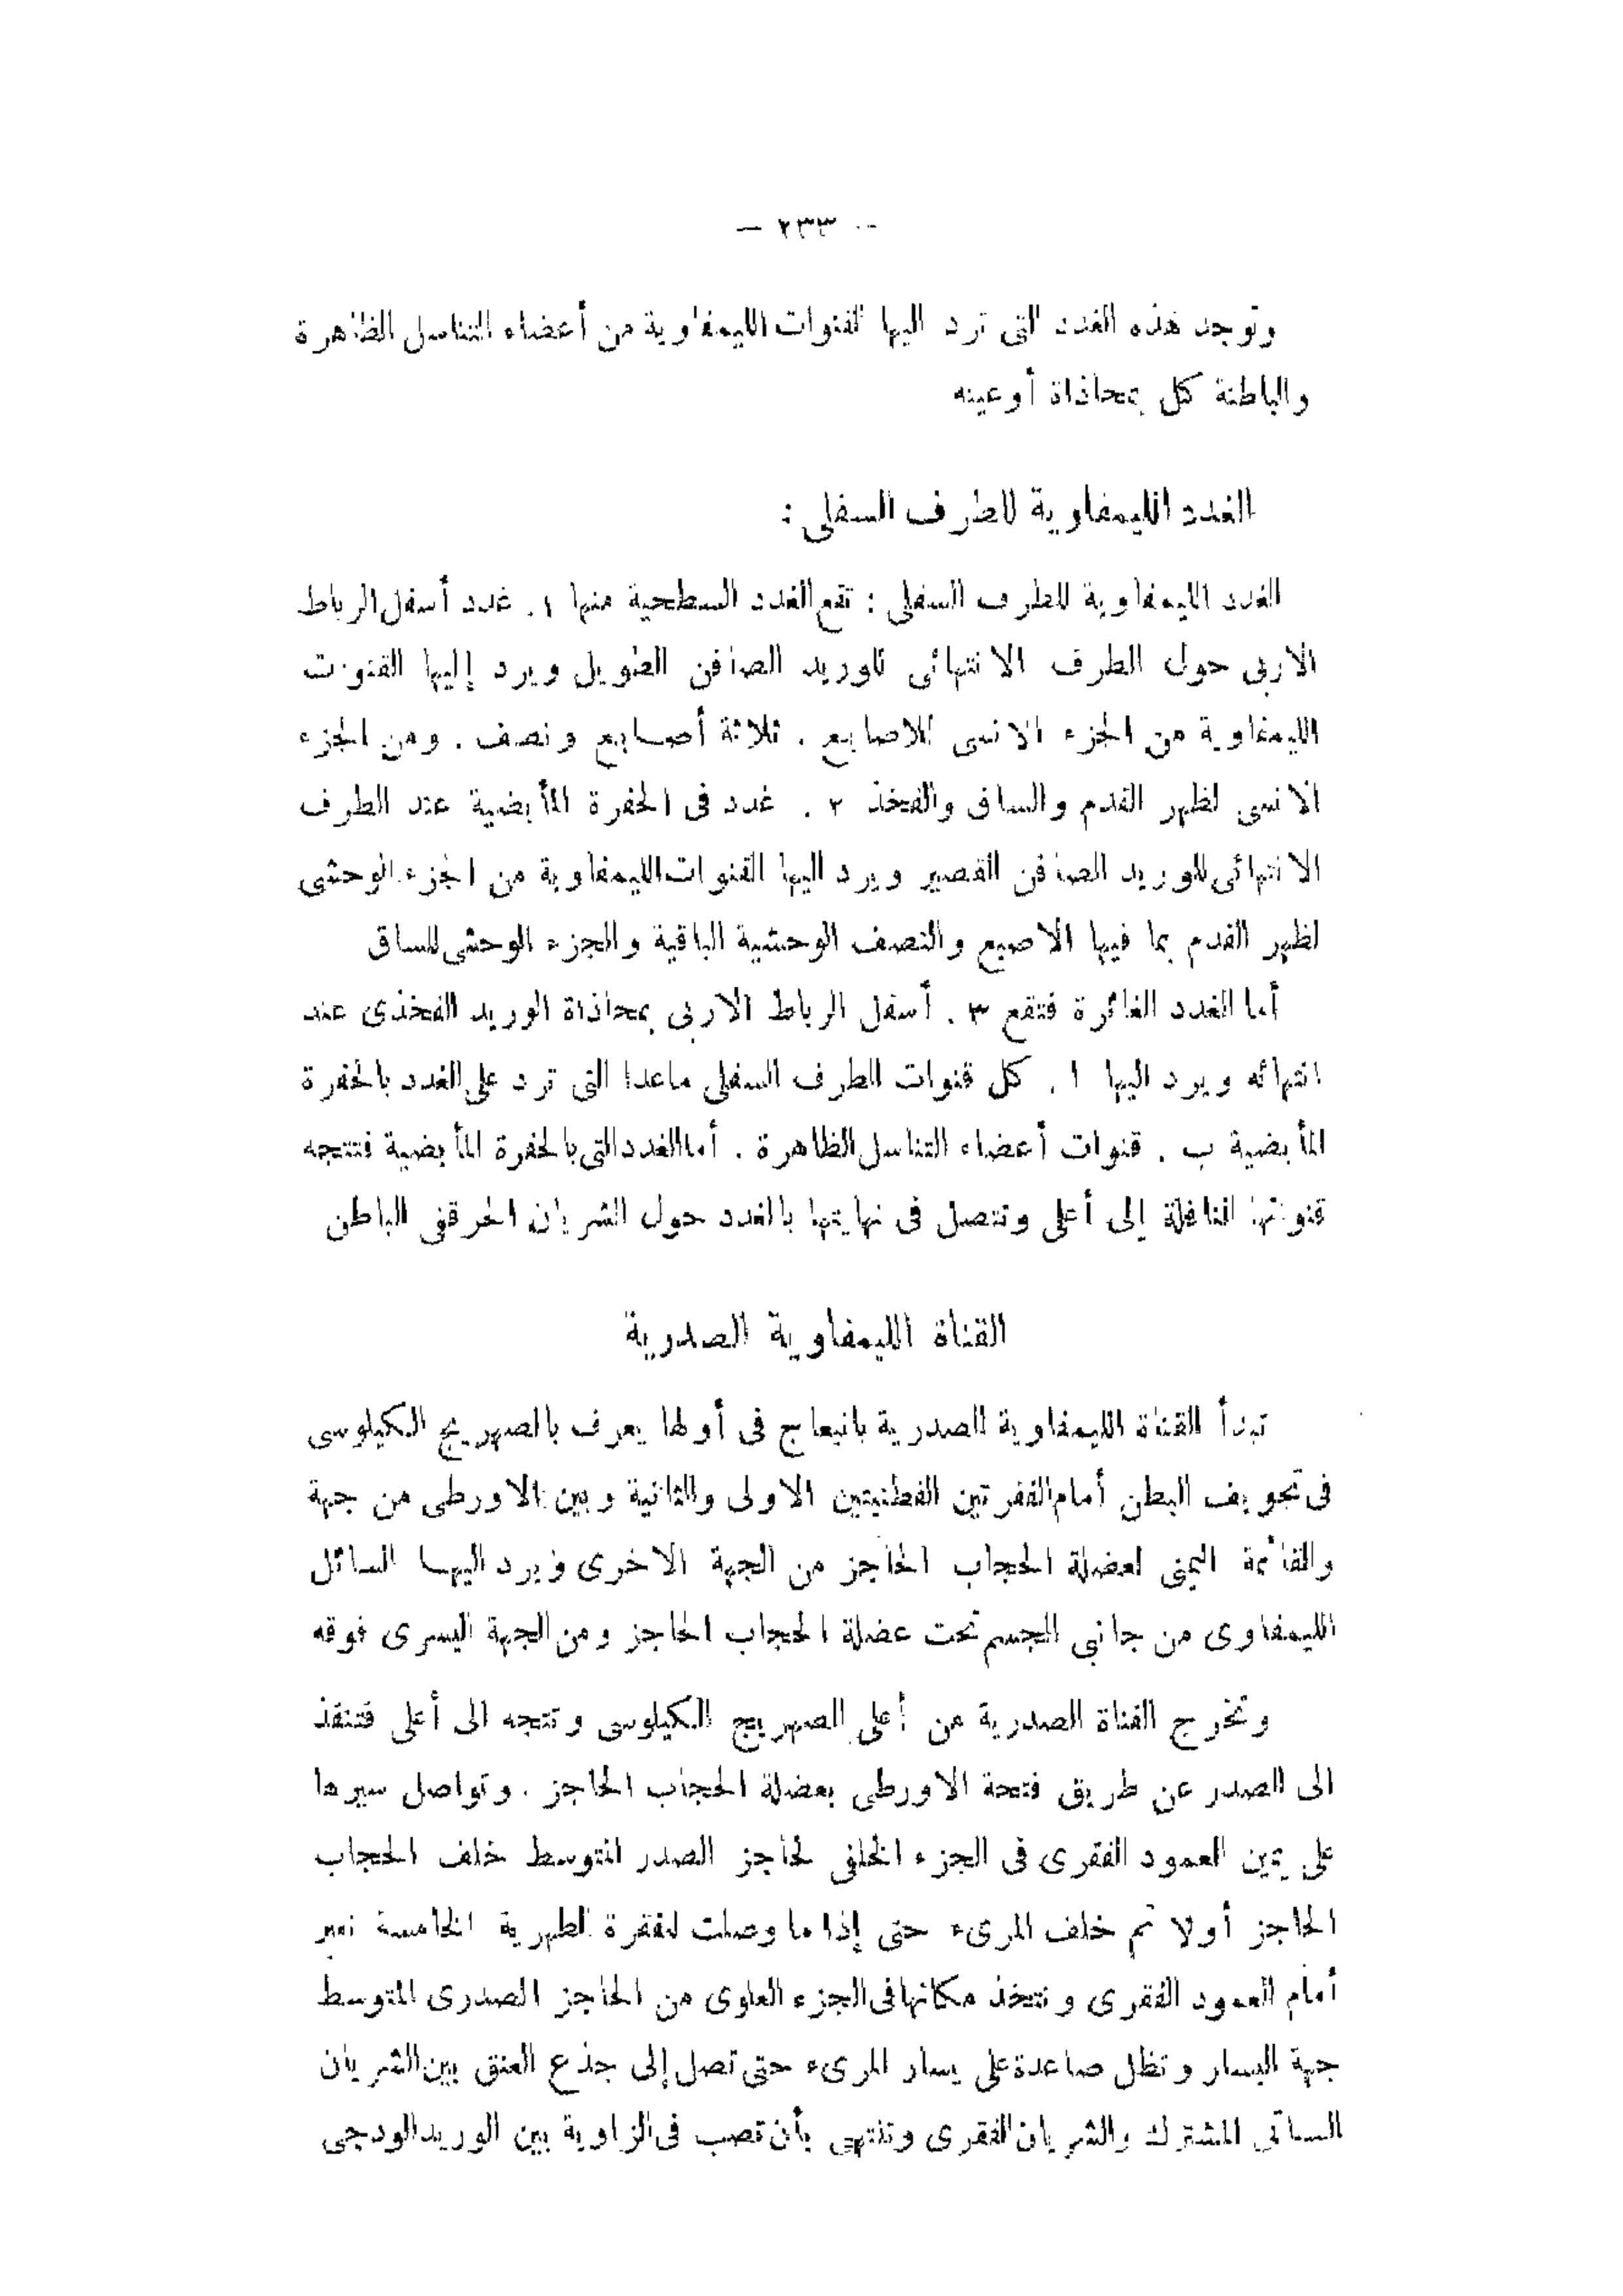 — ٢٣٣ —
وتوجد هذه الغدد التى ترد اليها القنوات الليمفاوية من أعضاء التناسل الظاهرة
والباطنة كل بمحاذاة أوعيته
الغدد الليمفاوية للطرف السفلى :
الغدد الليمفاوية للطرف السفلى : تقع الغدد السطحية منها ١ . غدد أسفل الرباط
الاربى حول الطرف الانتهائى للوريد الصافن الطويل ويرد إليها القنوات
الليمفاوية من الجزء الانسى للاصابع . ثلاثة أصابع ونصف . ومن الجزء
الانسى لظهر القدم والساق والفخذ ٢ . غدد فى الحفرة المأبضية عند الطرف
الانتهائى للوريد الصافن القصير ويرد اليها القنوات الليمفاوية من الجزء الوحشى
لظهر القدم بما فيها الاصبع والنصف الوحشية الباقية والجزء الوحشى للساق
أما الغدد الغائرة فتقع ٣ . أسفل الرباط الاربى بمحاذاة الوريد الفخذى عند
انتهائه ويرد اليها ا . كل قنوات الطرف السفلى ماعدا التى ترد على الغدد بالحفرة
المأبضية ب . قنوات أعضاء التناسل الظاهرة . أما الغدد التى بالحفرة المأبضية فتتجه
قنوتها الناقلة إلى أعلى وتتصل فى نهايتها بالغدد حول الشريان الحرقفى الباطن
القناة الليمفاوية الصدرية
تبدأ القناة الليمفاوية الصدرية بانبعاج فى أولها يعرف بالصهريج الكيلوسى
فى تجويف البطن أمام الفقرتين القطنيتين الاولى والثانية وبين الاورطى من جهة
والقائمة اليمنى لعضلة الحجاب الحاجز من الجهة الاخرى ويرد اليها السائل
الليمفاوى من جانبى الجسم تحت عضلة الحجاب الحاجز ومن الجهة اليسرى فوقه
وتخرج القناة الصدرية من أعلى الصهريج الكيلوسى وتتجه الى أعلى فتنفذ
الى الصدر عن طريق فتحة الاورطى بعضلة الحجاب الحاجز . وتواصل سيرها
على يمين العمود الفقرى فى الجزء الخلفى لحاجز الصدر المتوسط خلف الحجاب
الحاجز أولا ثم خلف المرىء حتى إذا ما وصلت للفقرة الظهرية الخامسة تعبر
أمام العمود الفقرى وتتخذ مكانها فى الجزء العلوى من الحاجز الصدرى المتوسط
جهة اليسار وتظل صاعدة على يسار المرىء حتى تصل إلى جذع العنق بين الشريان
السباتى المشترك والشريان الفقرى وتنتهى بأن تصب فى الزاوية بين الوريد الودجى